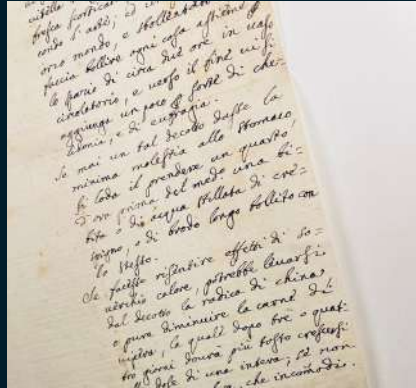 fresca scorticata
condo l'arte; ed un
orzo mondo, e
faccia bollire ogni cosa assieme
lo spazio di circa due ore in vaso
circolatorio, e verso il fine vi si
aggiunga un poco di
e di eufragia.
Se mai un tal decotto dasse la
minima molestia allo stomaco,
si loda il prendere un quarto,
d'ora prima del medo una bi=
bita di acqua stillata di cre=
spigno, o di brodo longo bollito con
lo stesso.
Se facesse risentire effetti di so=
verchio calore, potrebbe levarsi
dal decotto la radica di china
o pure diminuire la carne di
vipera, la quale dopo tre o quat=
tro giorni dovrà più tosto crescersi
dole di una intera; se non
che incomodi.